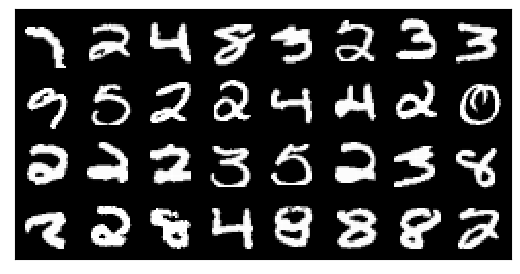 7 2 4 8 3 2 3 3
9 5 2 2 4 4 2 0
2 2 2 3 5 2 3 8
2 2 8 4 8 8 8 2